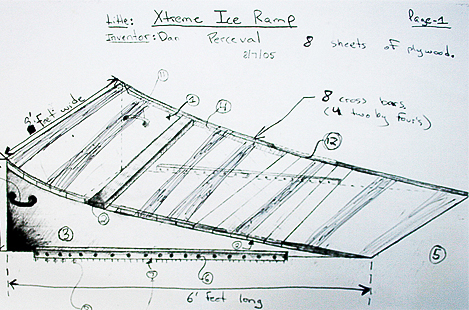 title: Xtreme Ice Ramp
Page-1
Inventor: Dan Perceval
8 sheets of plywood.
2/7/05
8' feet wide
8 cross bars
(4 two by four's)
11
1
4
12
2
3
5
6
7
6' feet long